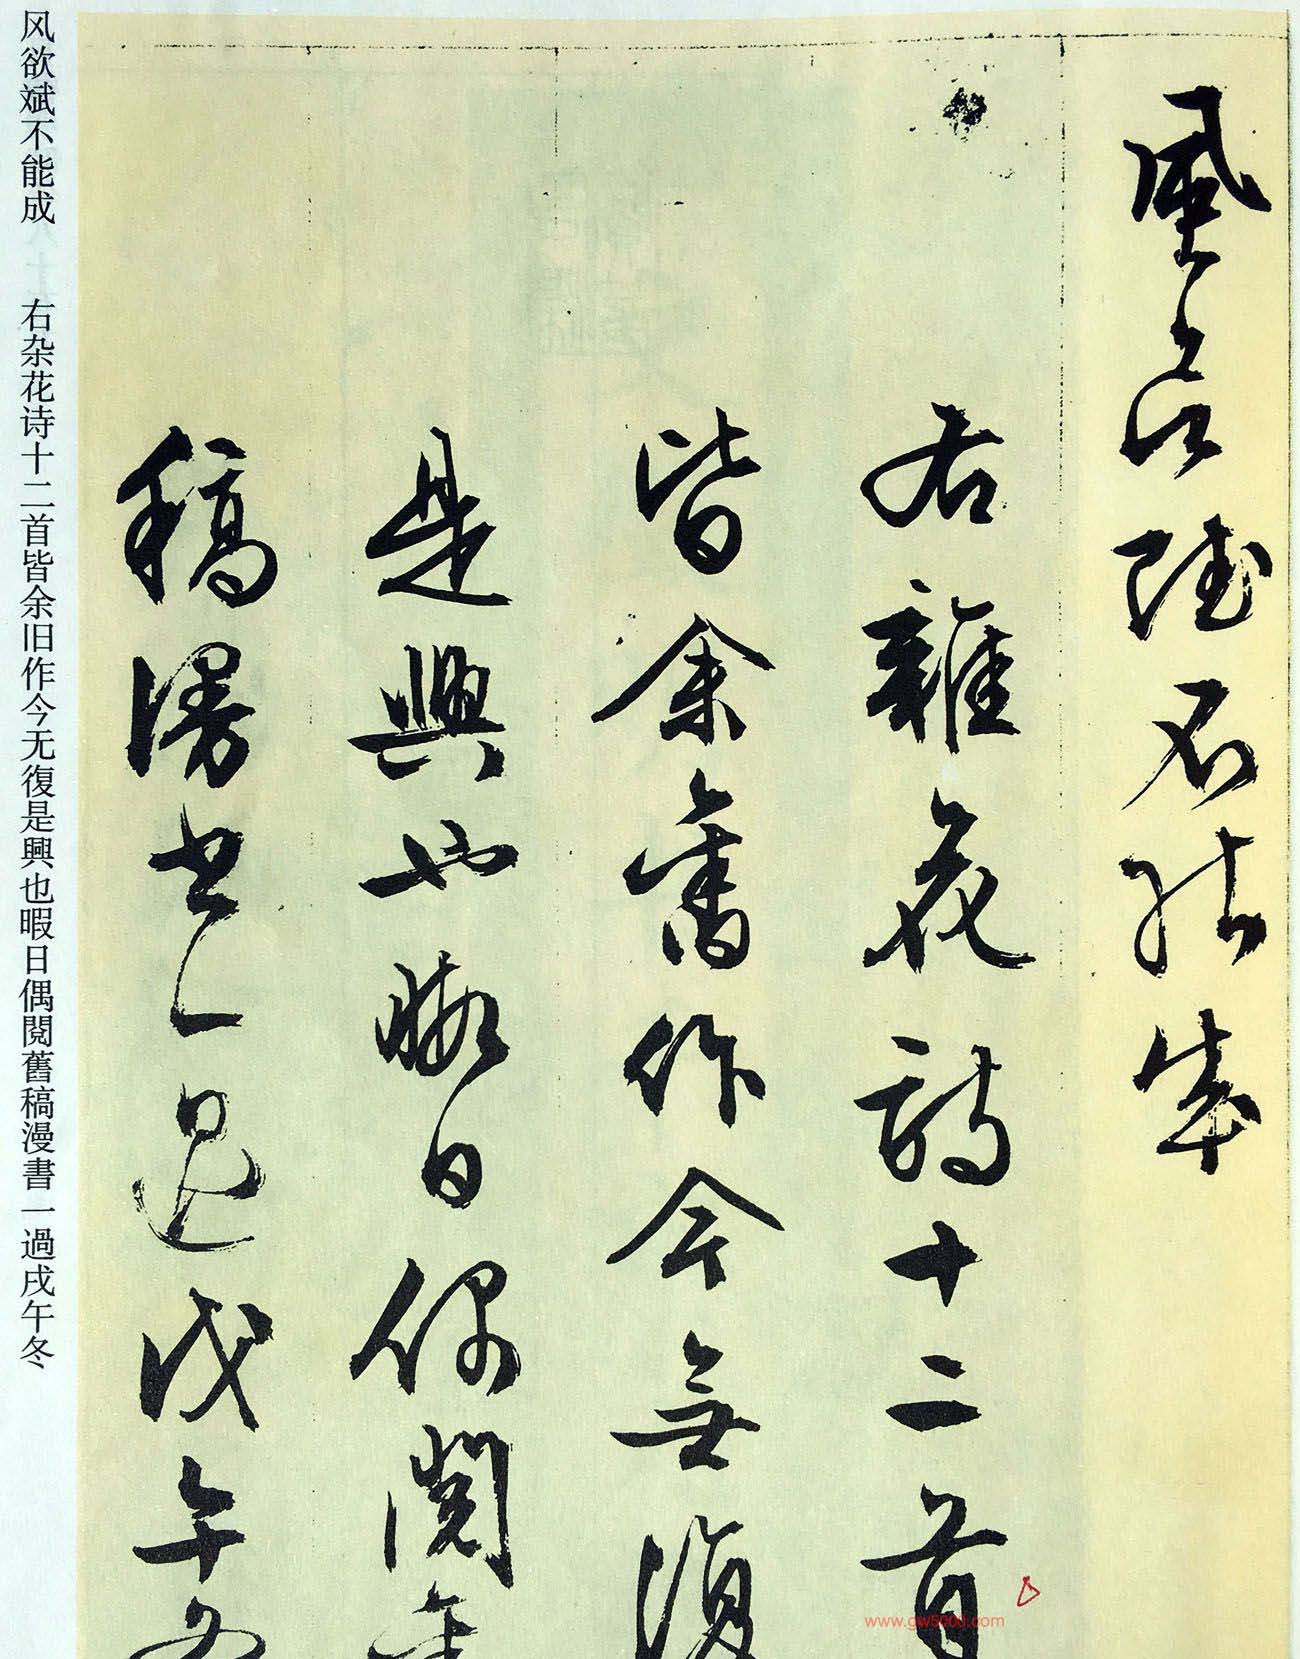 風欲賦不能成
右雜花詩十二首
皆余舊作今無復
是興也暇日偶閱舊
稿漫書一過戊午冬
风欲斌不能成 右杂花诗十二首皆余旧作今无復是興也暇日偶閱舊稿漫書一過戌午冬
www.gw5000.com